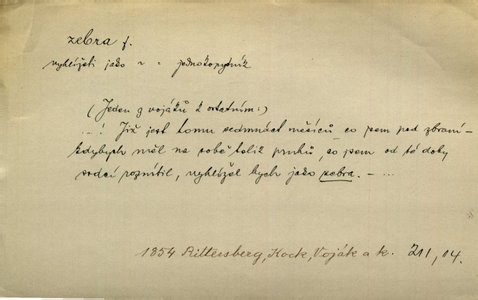 zebra f.
vyhlížeti jako ~ ~ jednokopytník
(Jeden z vojáků k ostatním:)
...! Již jest tomu sedmnáct měsíců, co jsem pod zbraní –
kdybych měl na sobě tolik pruhů, co jsem od té doby
srdcí roznítil, vyhlížel bych jako zebra. – ...
1854 Rittersberg, Kock, Voják a k. 211, 04.